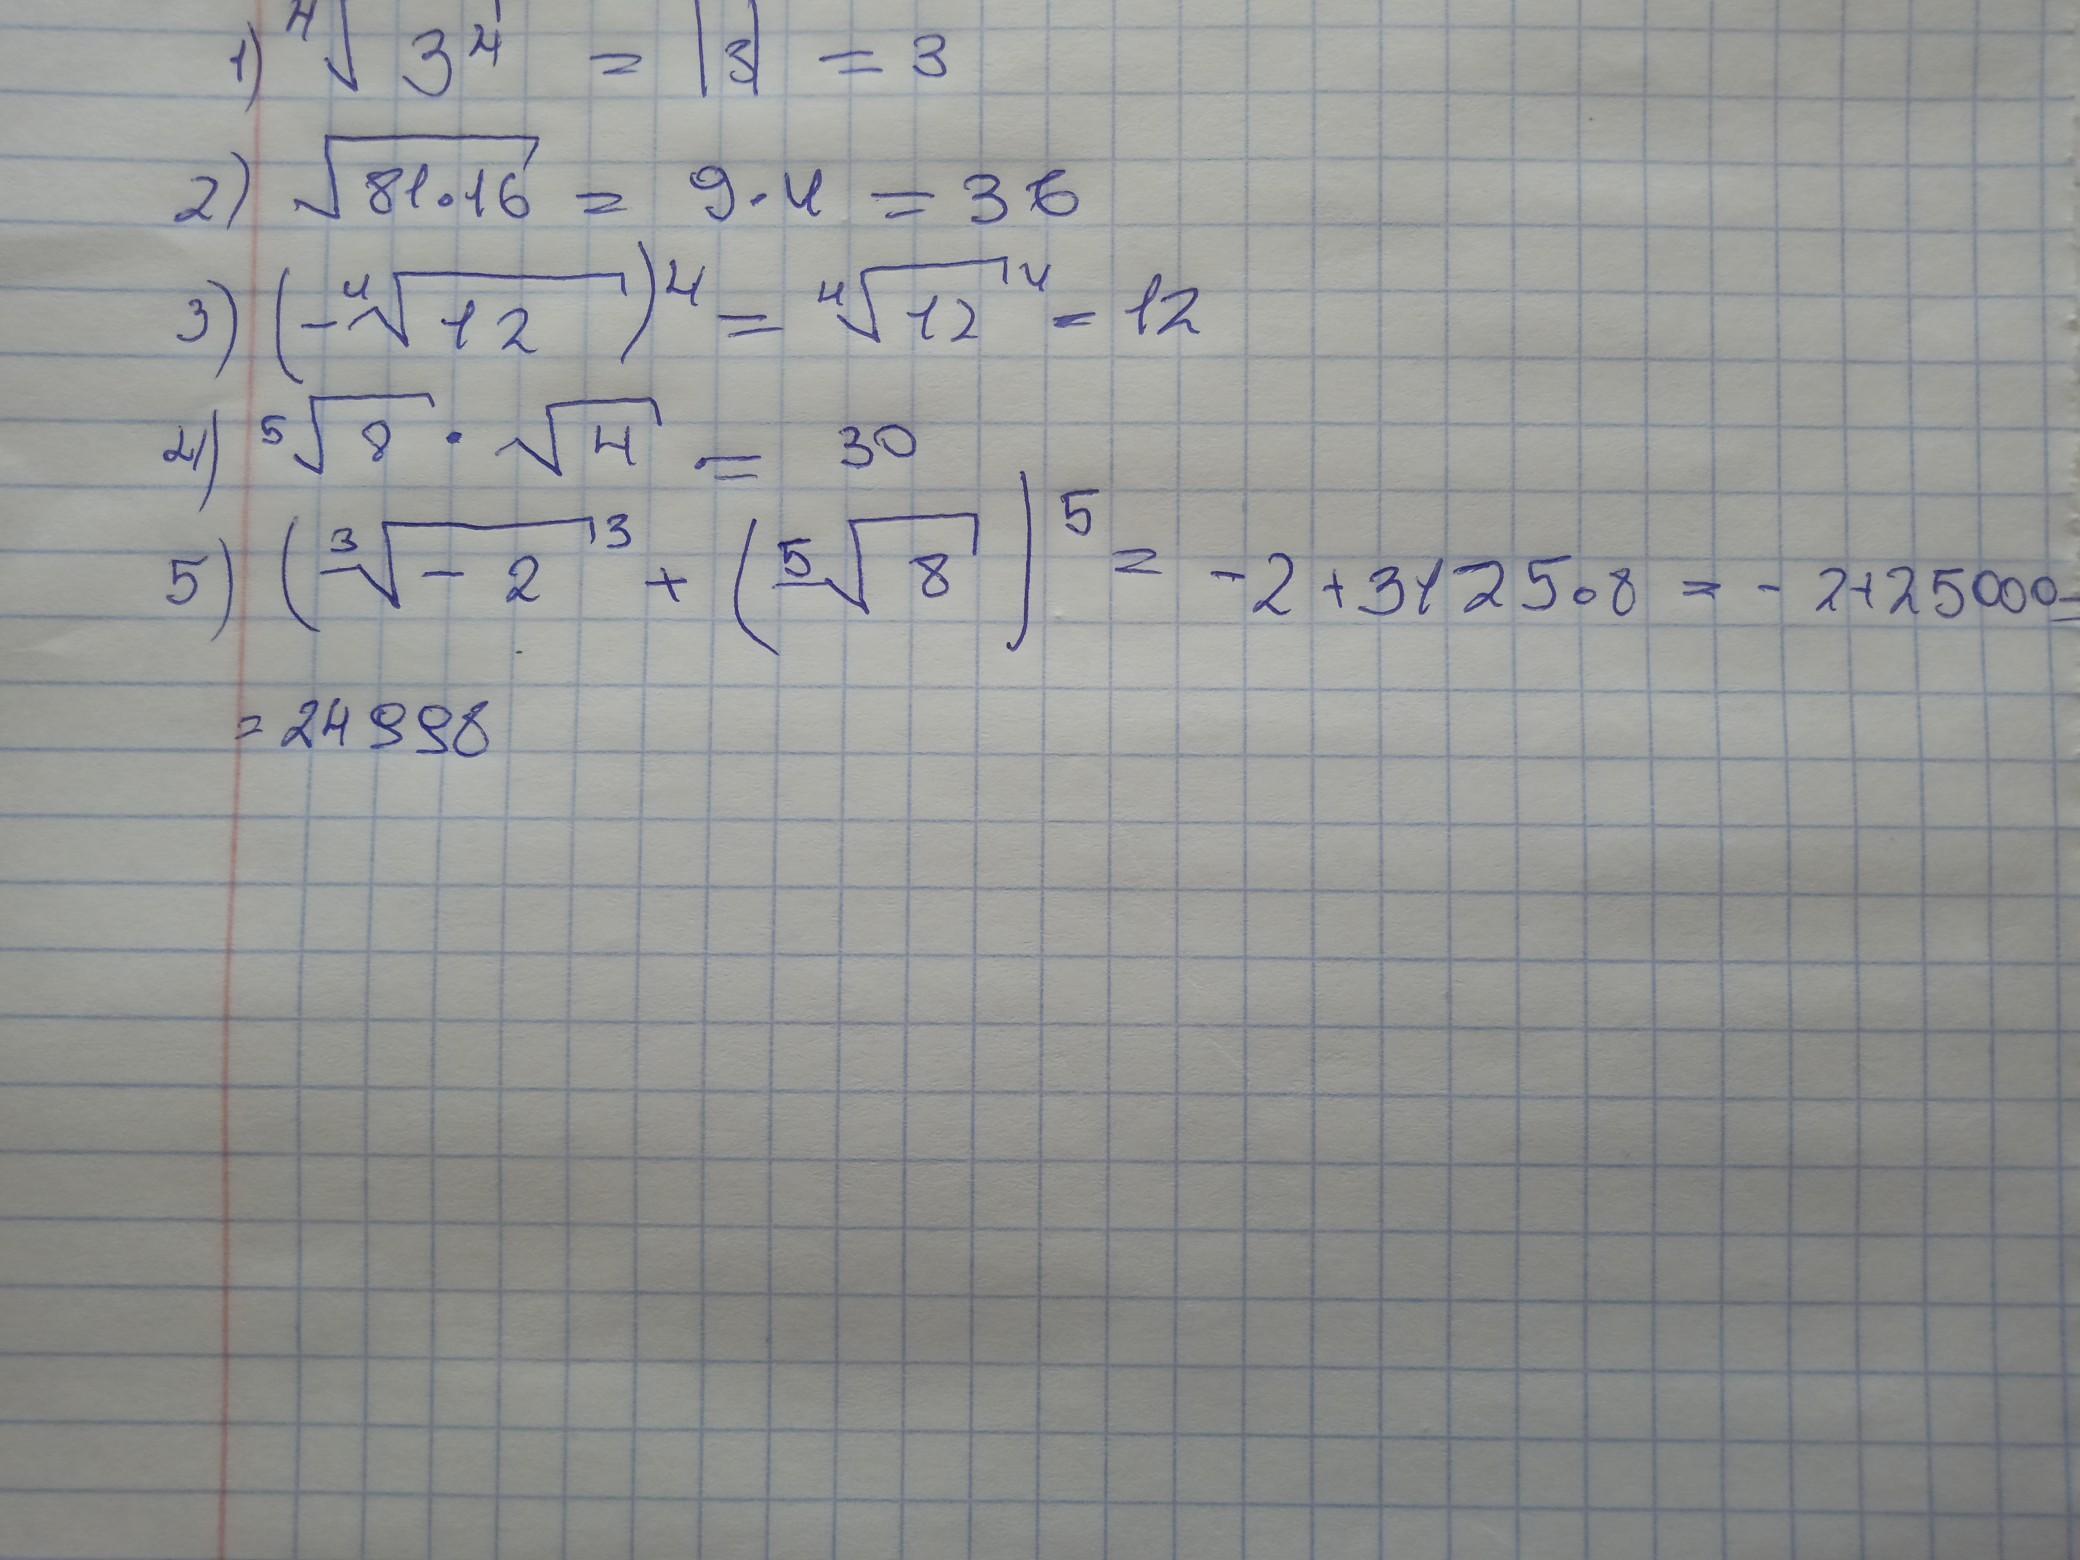 1) ⁴√3⁴ = |3| = 3
2) √81·16 = 9·4 = 36
3) (-⁴√12)⁴ = ⁴√12⁴ = 12
4) ⁵√8 · √4 = 30
5) (³√-2³ + (⁵√8)⁵ = -2+3125·8 = -2+25000=
= 24998